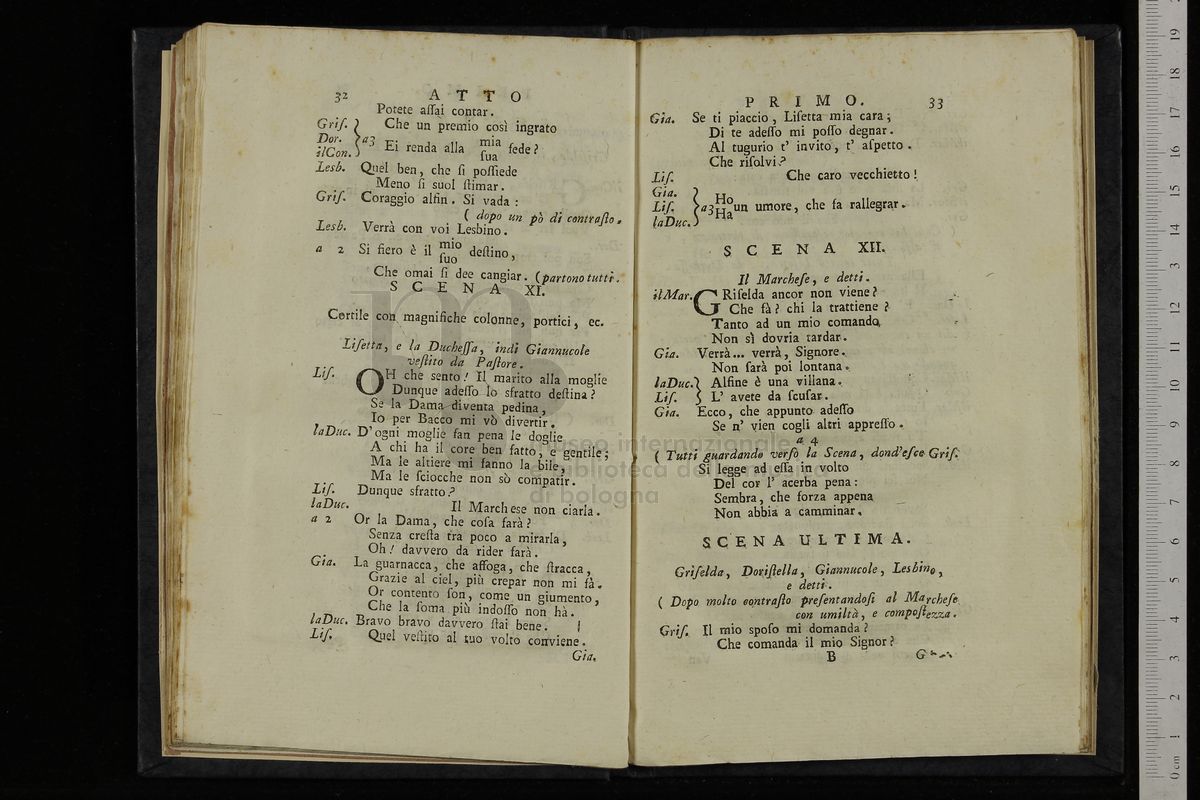 32 ATTO
Potete aſſai contar.
Griſ. Che un premio così ingrato
Dor. a3 Ei renda alla mia ſede?
ilCon. ſua
Lesb. Quel ben, che ſi poſſiede
Meno ſi suol ſtimar.
Griſ. Coraggio alfin. Si vada:
( dopo un pò di contraſto.
Lesb. Verrà con voi Lesbino.
a 2 Si fiero è il mio deſtino,
ſuo
Che omai ſi dee cangiar. (partono tutti.
SCENA XI.
Cortile con magnifiche colonne, portici, ec.
Liſetta, e la Ducheſſa, indi Giannucole
veſtito da Paſtore.
Liſ. OH che sento! Il marito alla moglie
Dunque adeſſo lo sfratto deſtina?
Se la Dama diventa pedina,
Io per Bacco mi vò divertir.
laDuc. D'ogni moglie fan pena le doglie
A chi ha il core ben fatto, e gentile;
Ma le altiere mi fanno la bile,
Ma le ſciocche non sò compatir.
Liſ. Dunque sfratto?
laDuc. Il Marchese non ciarla.
a 2 Or la Dama, che coſa farà?
Senza creſta tra poco a mirarla,
Oh! davvero da rider farà.
Gia. La guarnacca, che affoga, che ſtracca,
Grazie al ciel, più crepar non mi fà.
Or contento ſon, come un giumento,
Che la ſoma più indoſſo non hà.
laDuc. Bravo bravo davvero ſtai bene.
Liſ. Quel veſtito al tuo volto conviene.
Gia.
PRIMO. 33
Gia. Se ti piaccio, Liſetta mia cara;
Di te adeſſo mi poſſo degnar.
Al tugurio t' invito, t' aſpetto.
Che riſolvi?
Liſ. Che caro vecchietto!
Gia.
Liſ. a3 Ho un umore, che fa rallegrar.
laDuc. Ha
SCENA XII.
Il Marcheſe, e detti.
ilMar. GRiſelda ancor non viene?
Che fà? chi la trattiene?
Tanto ad un mio comando
Non sì dovria tardar.
Gia. Verrà... verrà, Signore.
Non farà poi lontana.
laDuc. Alfine è una villana.
Liſ. L' avete da ſcuſar.
Gia. Ecco, che appunto adeſſo
Se n' vien cogli altri appreſſo.
a 4
( Tutti guardando verſo la Scena, dond'eſce Griſ.
Si legge ad eſſa in volto
Del cor l' acerba pena:
Sembra, che forza appena
Non abbia a camminar.
SCENA ULTIMA.
Griſelda, Doriſtella, Giannucole, Lesbino,
e detti.
( Dopo molto contraſto preſentandoſi al Marcheſe
con umiltà, e compoſtezza.
Griſ. Il mio spoſo mi domanda?
Che comanda il mio Signor?
B
museo internazionale
e biblioteca della musica
di bologna
0 cm 1 2 3 4 5 6 7 8 9 10 11 12 13 14 15 16 17 18 19